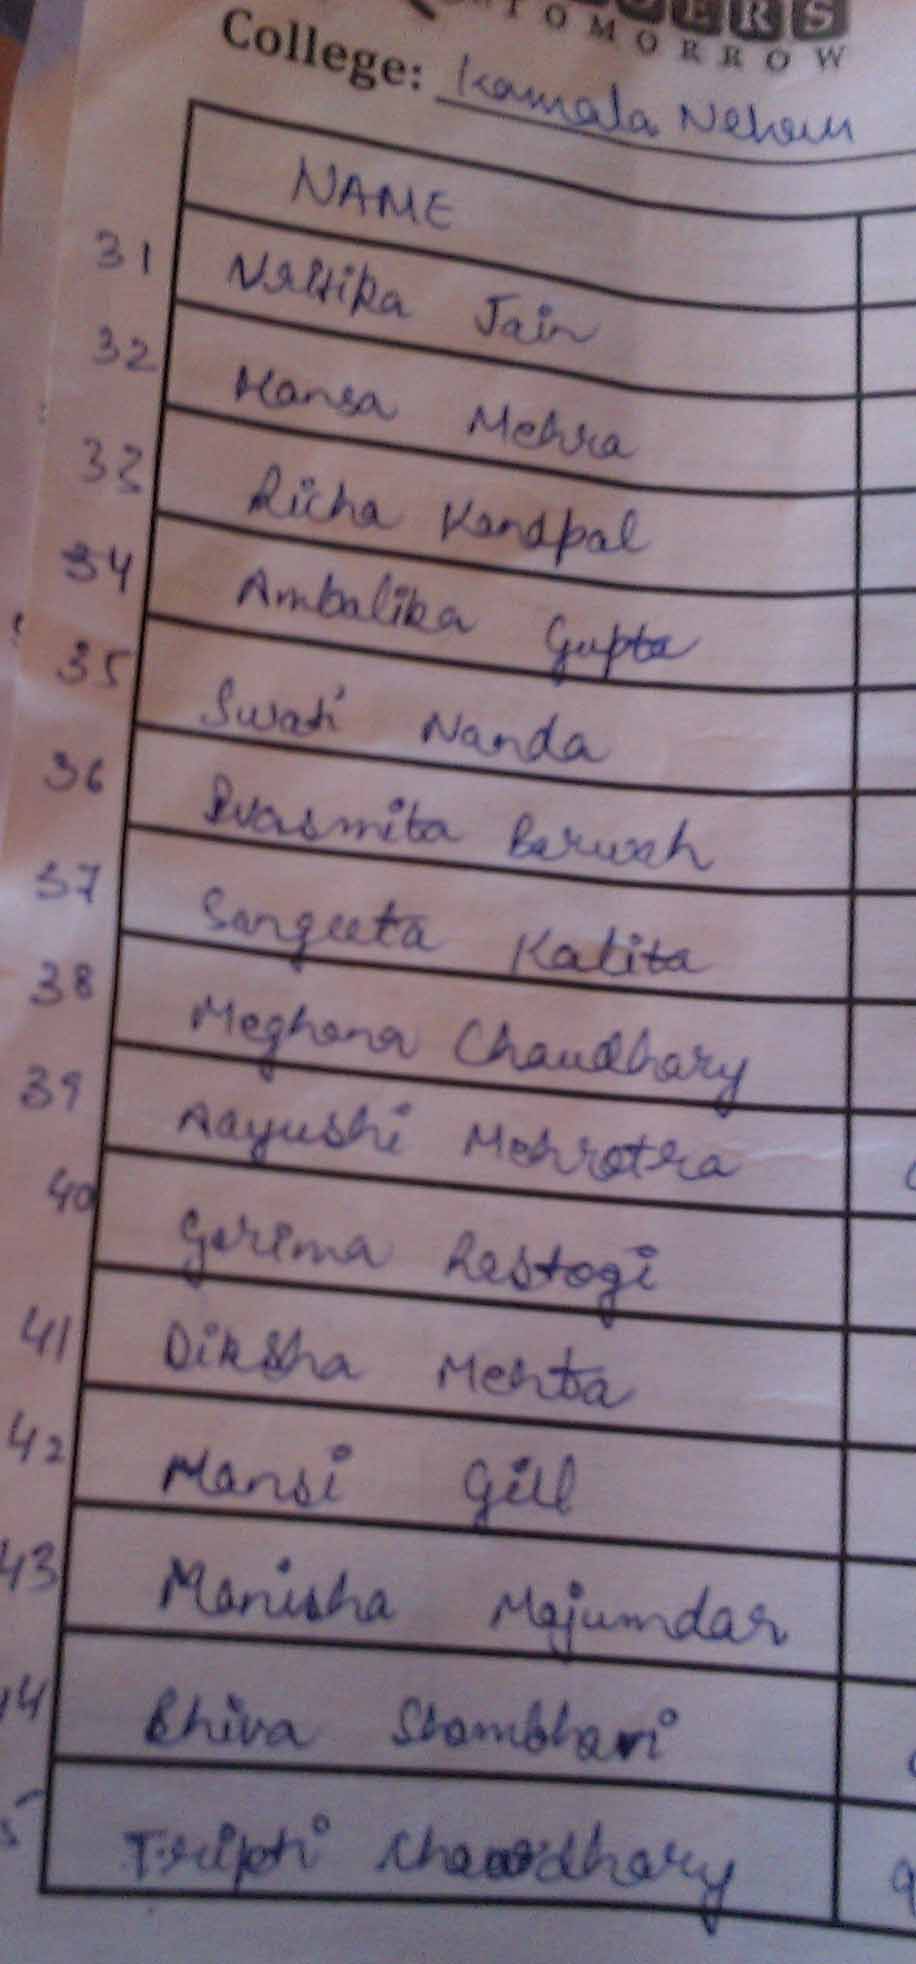 ERS
TOMORROW
College: Kamala Nehru
NAME
31 Nritika Jain
32 Hansa Mehra
33 Richa Kandpal
34 Ambalika Gupta
35 Swati Nanda
36 Barwah
37 Sangeeta Kalita
38 Meghana Chaudhary
39 Aayushi Mehrotra
40 Garima Rastogi
41 Diksha Mehta
42 Mansi Gill
43 Manisha Majumdar
44 Stambhani
5 Tripti Chowdhary